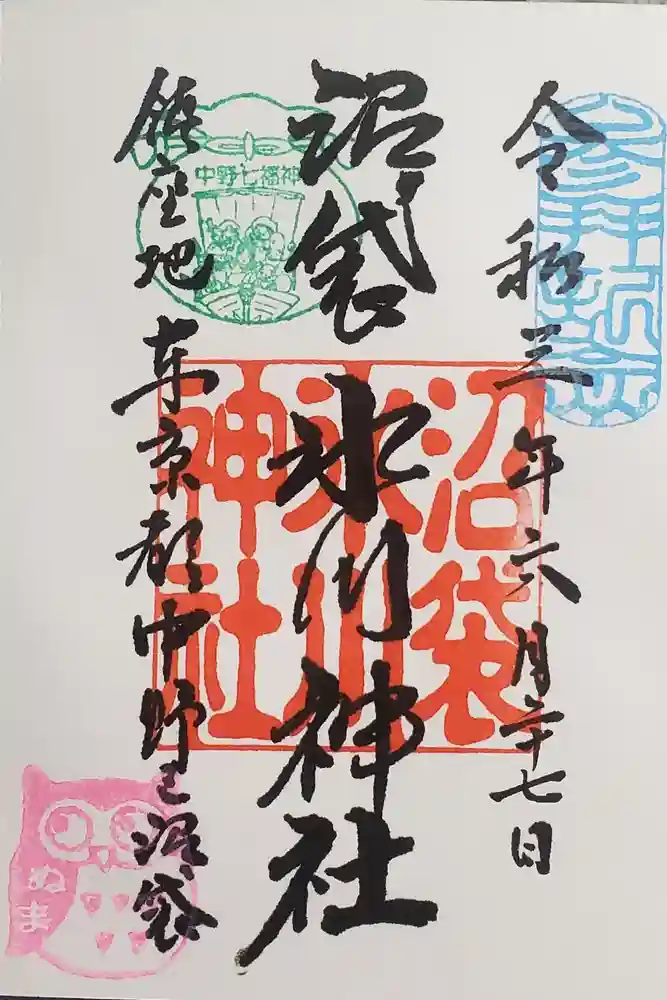 令和三年六月二十七日
参拝記念
沼袋氷川神社
沼袋
氷川
神社
鎮座地 東京都中野区沼袋
中野七福神
ぬま